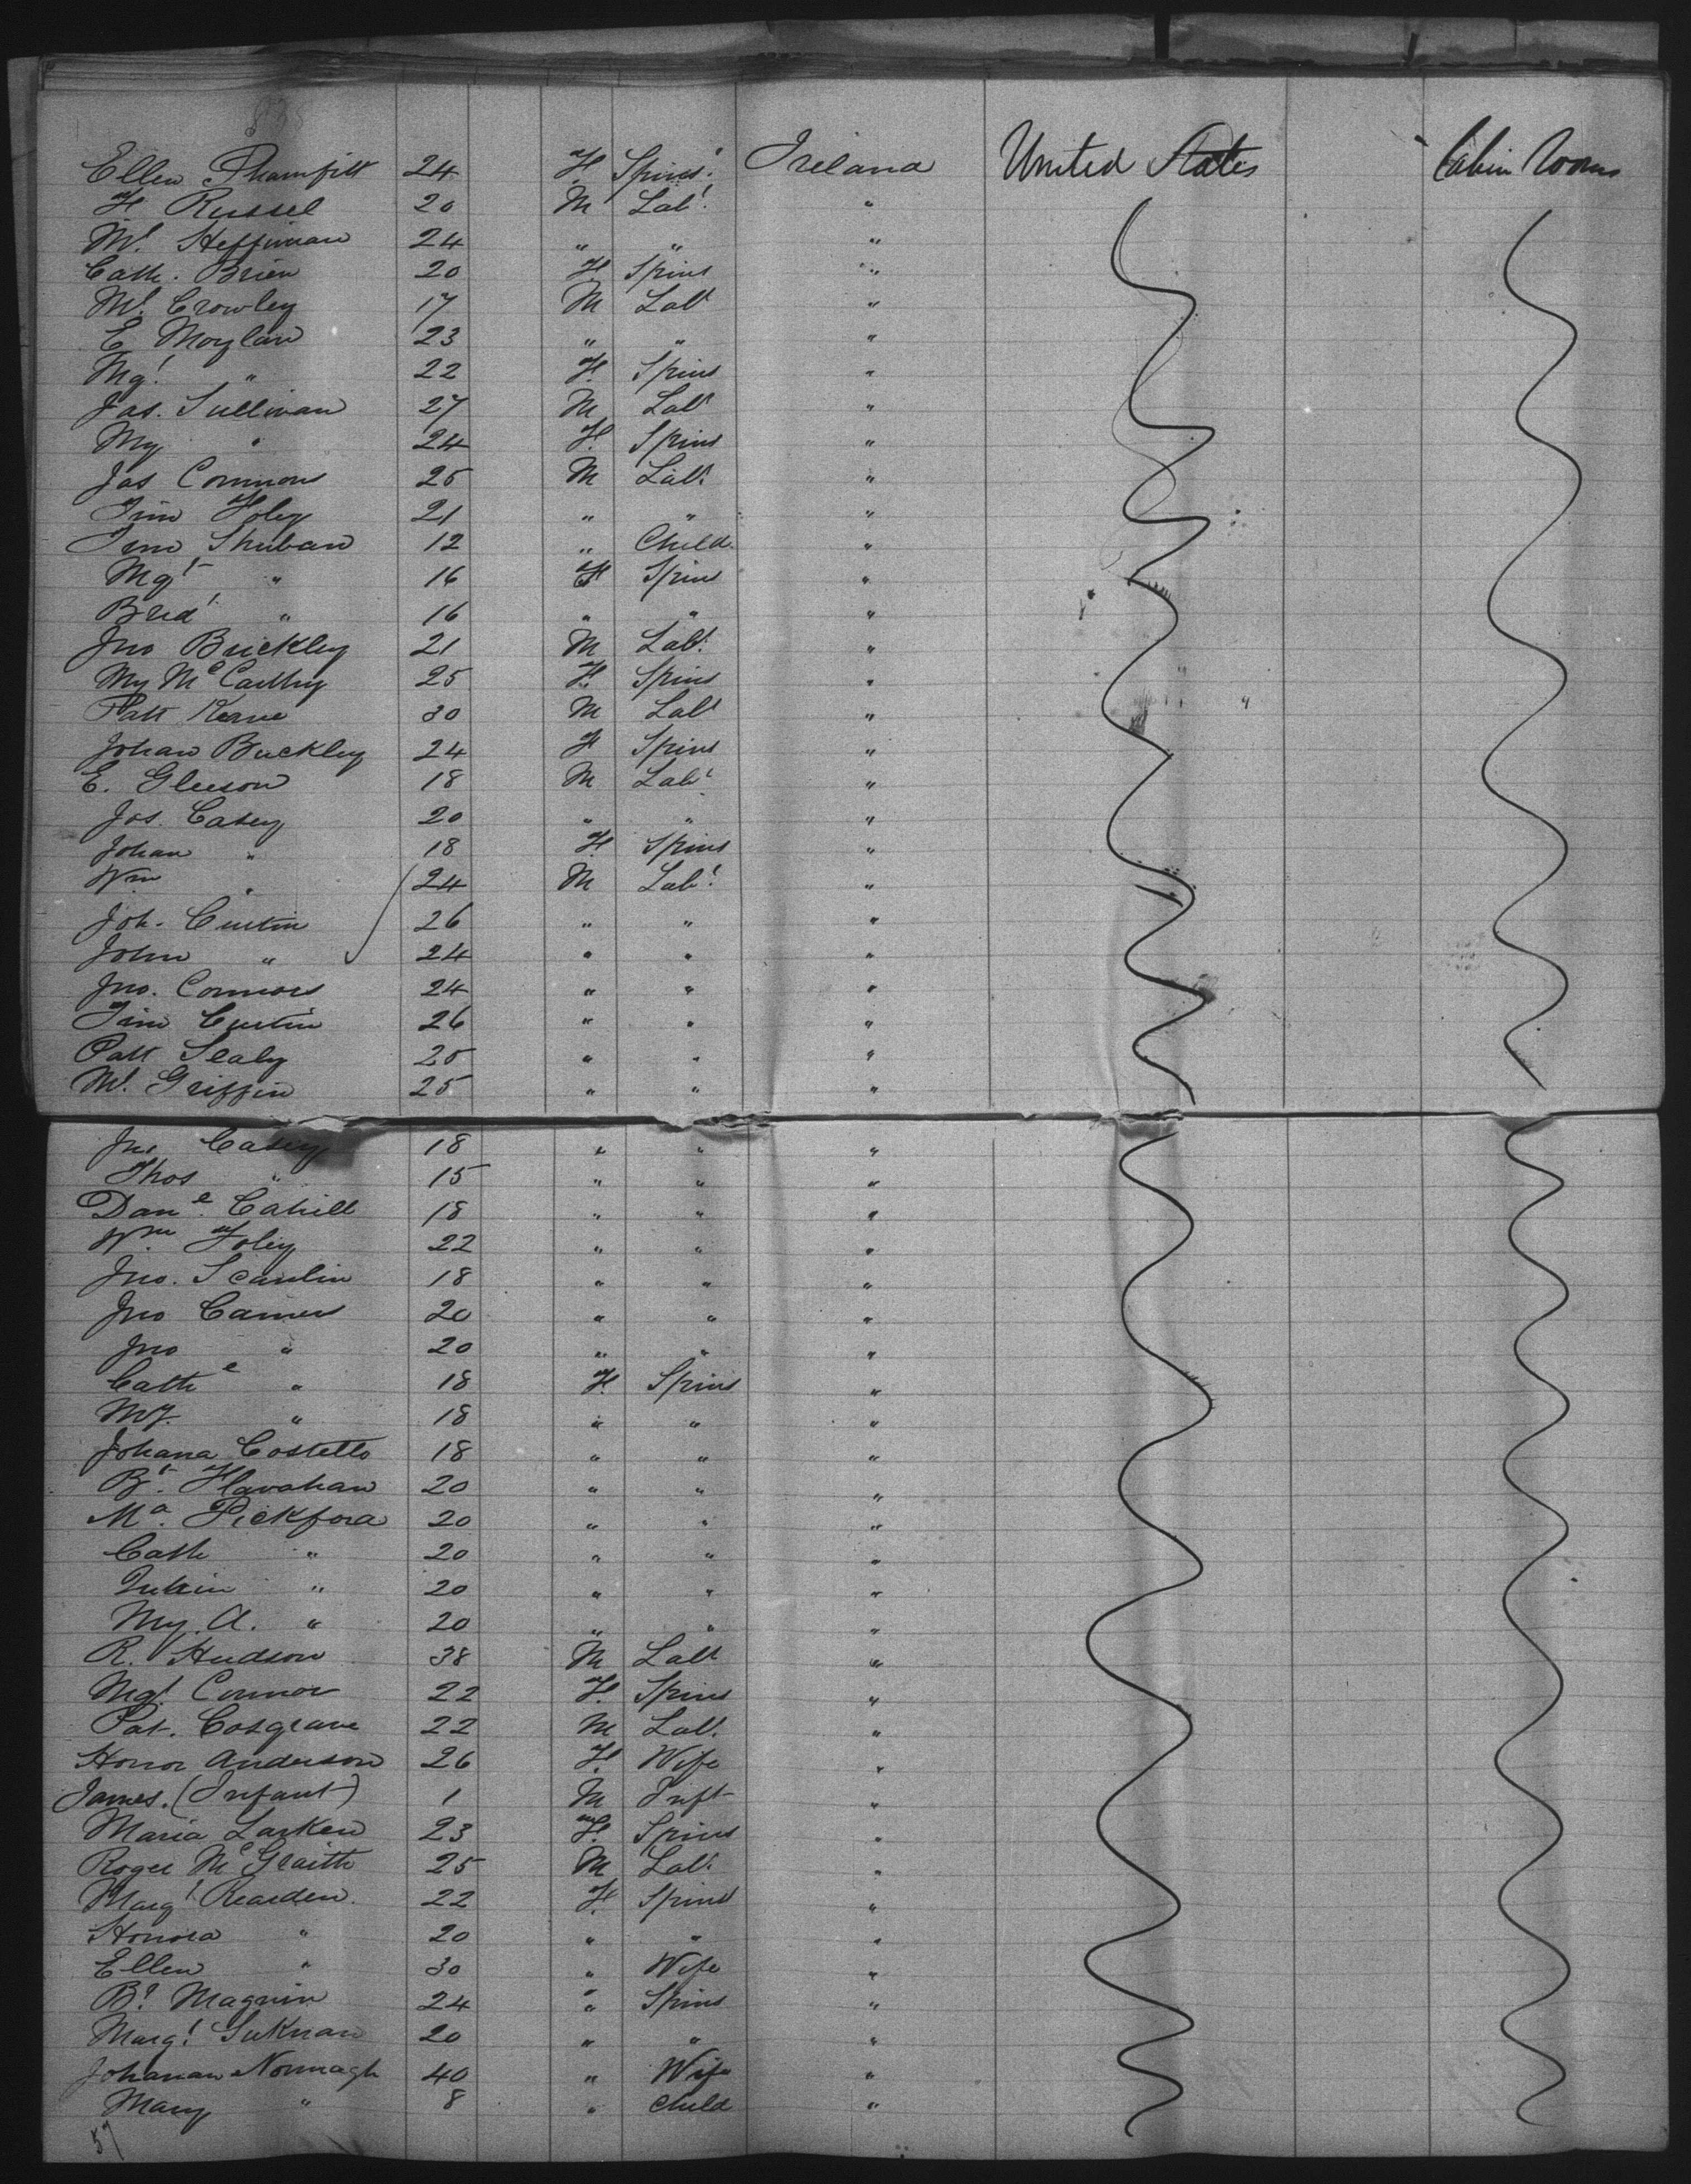 Ellen 24 F Spinst. Ireland United States Cabin Rooms
H Russel 20 M Labr. "
Ml. Heffernan 24 " " "
Cath. Brien 20 F Spins "
Ml. Crowley 17 M Labr "
E Moylan 23 " " "
Mgt. " 22 F Spins "
Jas. Sullivan 27 M Labr "
My " 24 F Spins "
Jas Connors 25 M Labr. "
Tim Foley 21 " " "
12 " Child "
Mgt " 16 F Spins "
Brid. " 16 " " "
Jno Brickley 21 M Labr. "
My McCarthy 25 F Spins "
Patt Keane 30 M Labr "
Johan Buckley 24 F Spins "
E. Gleeson 18 M Labr "
Jos. Casey 20 " " "
Johan " 18 F Spins "
Wm " 24 M Labr. "
Joh. Curtin 26 " " "
John " 24 " " "
Jno. Connors 24 " " "
Tim Curtin 26 " " "
Patt Sealy 25 " " "
Ml. Griffin 25 " " "
Jno Casey 18 " " "
Thos " 15 " " "
Danl. Cahill 18 " " "
Wm. Foley 22 " " "
Jno. Scanlin 18 " " "
Jno 20 " " "
Jno " 20 " " "
Cathe " 18 F Spins "
My. " 18 " " "
Johana Costello 18 " " "
Bt. Flavahan 20 " " "
Ma. Pickford 20 " " "
Cath " 20 " " "
" 20 " " "
My. A. " 20 " " "
R. Hudson 38 M Labr "
Mgt. Connor 22 F. Spins "
Pat. Cosgrave 22 M Labr. "
Honor Anderson 26 F. Wife "
James. (Infant) 1 M Inft "
Maria Larken 23 F. Spins "
Roger McGraith 25 M Labr. "
Margt Rearden. 22 F. Spins "
Honora " 20 " " "
Ellen " 30 " Wife "
Bt. Magnin 24 " Spins "
Margt. 20 " " "
Johanan Normagh 40 " Wife "
Mary " 8 " Child "
57